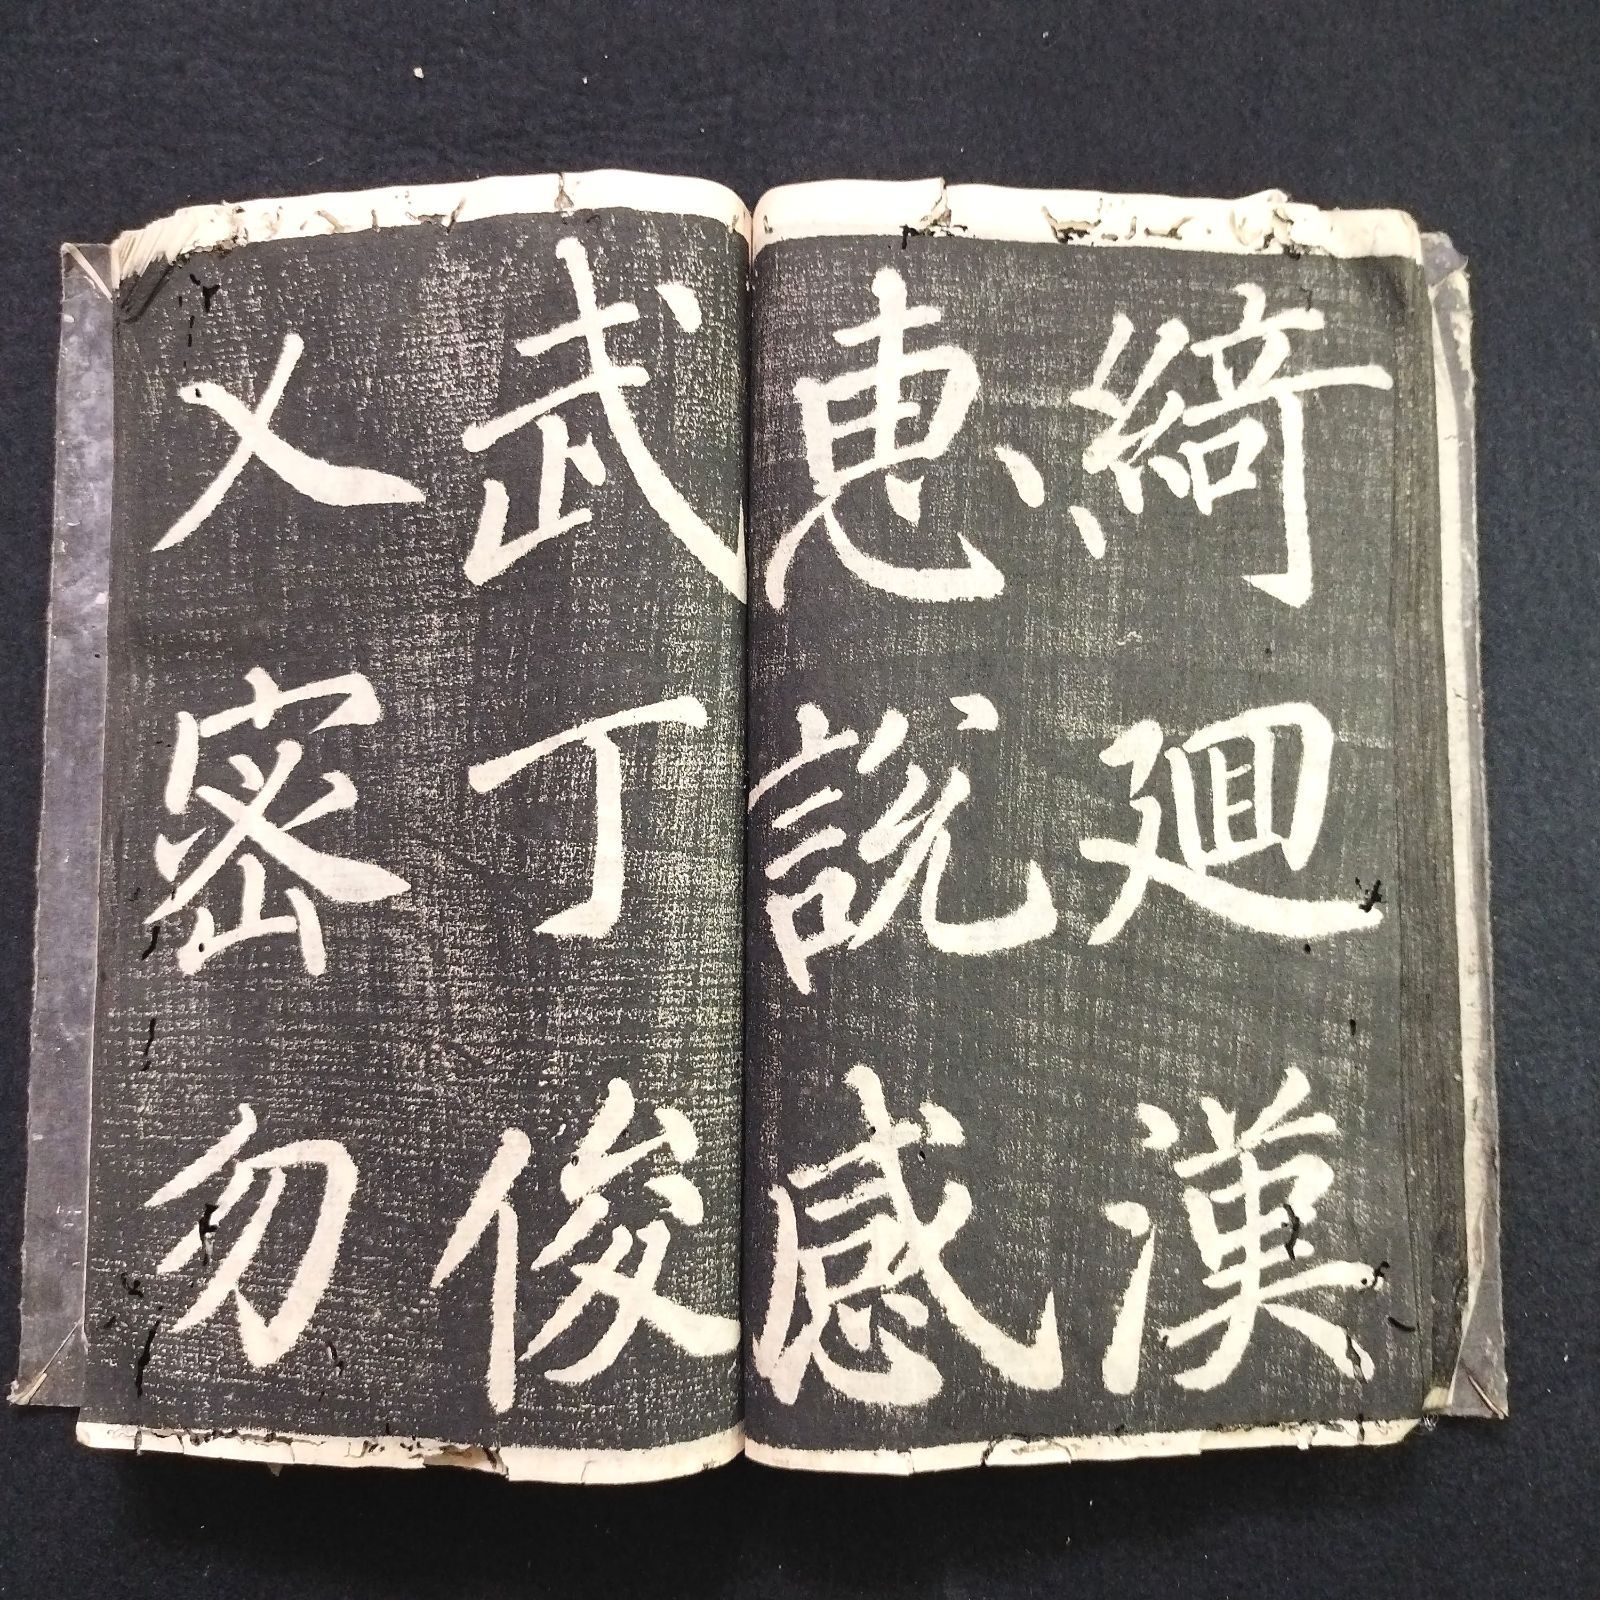 綺廻漢
惠說感
武丁俊
乂密勿